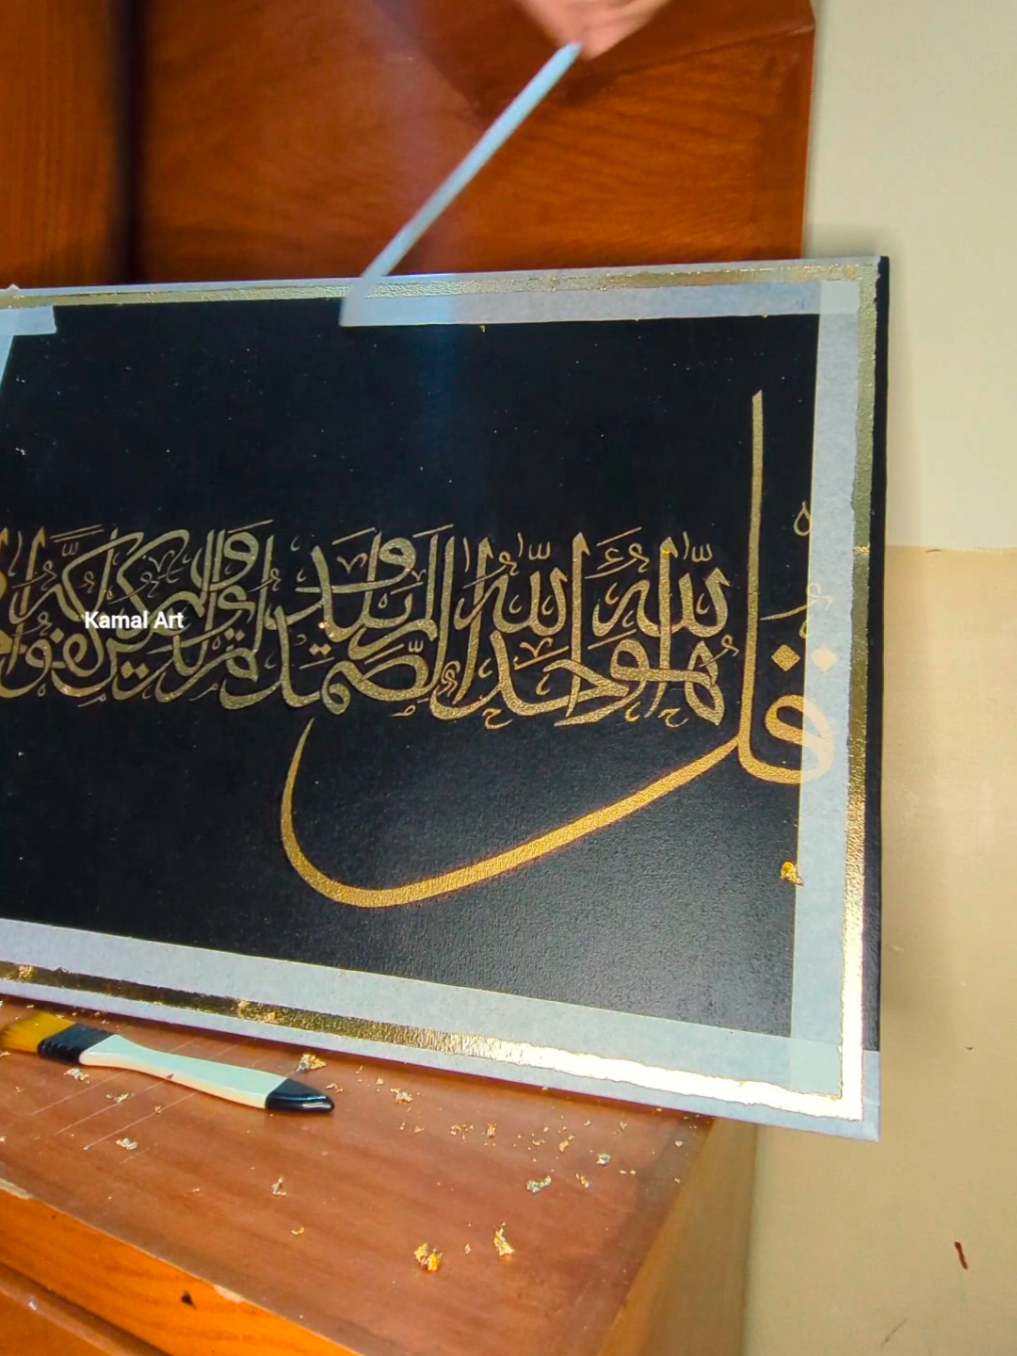 قل هو الله أحد الله الصمد لم يلد ولم يولد ولم يكن له كفوا
Kamal Art